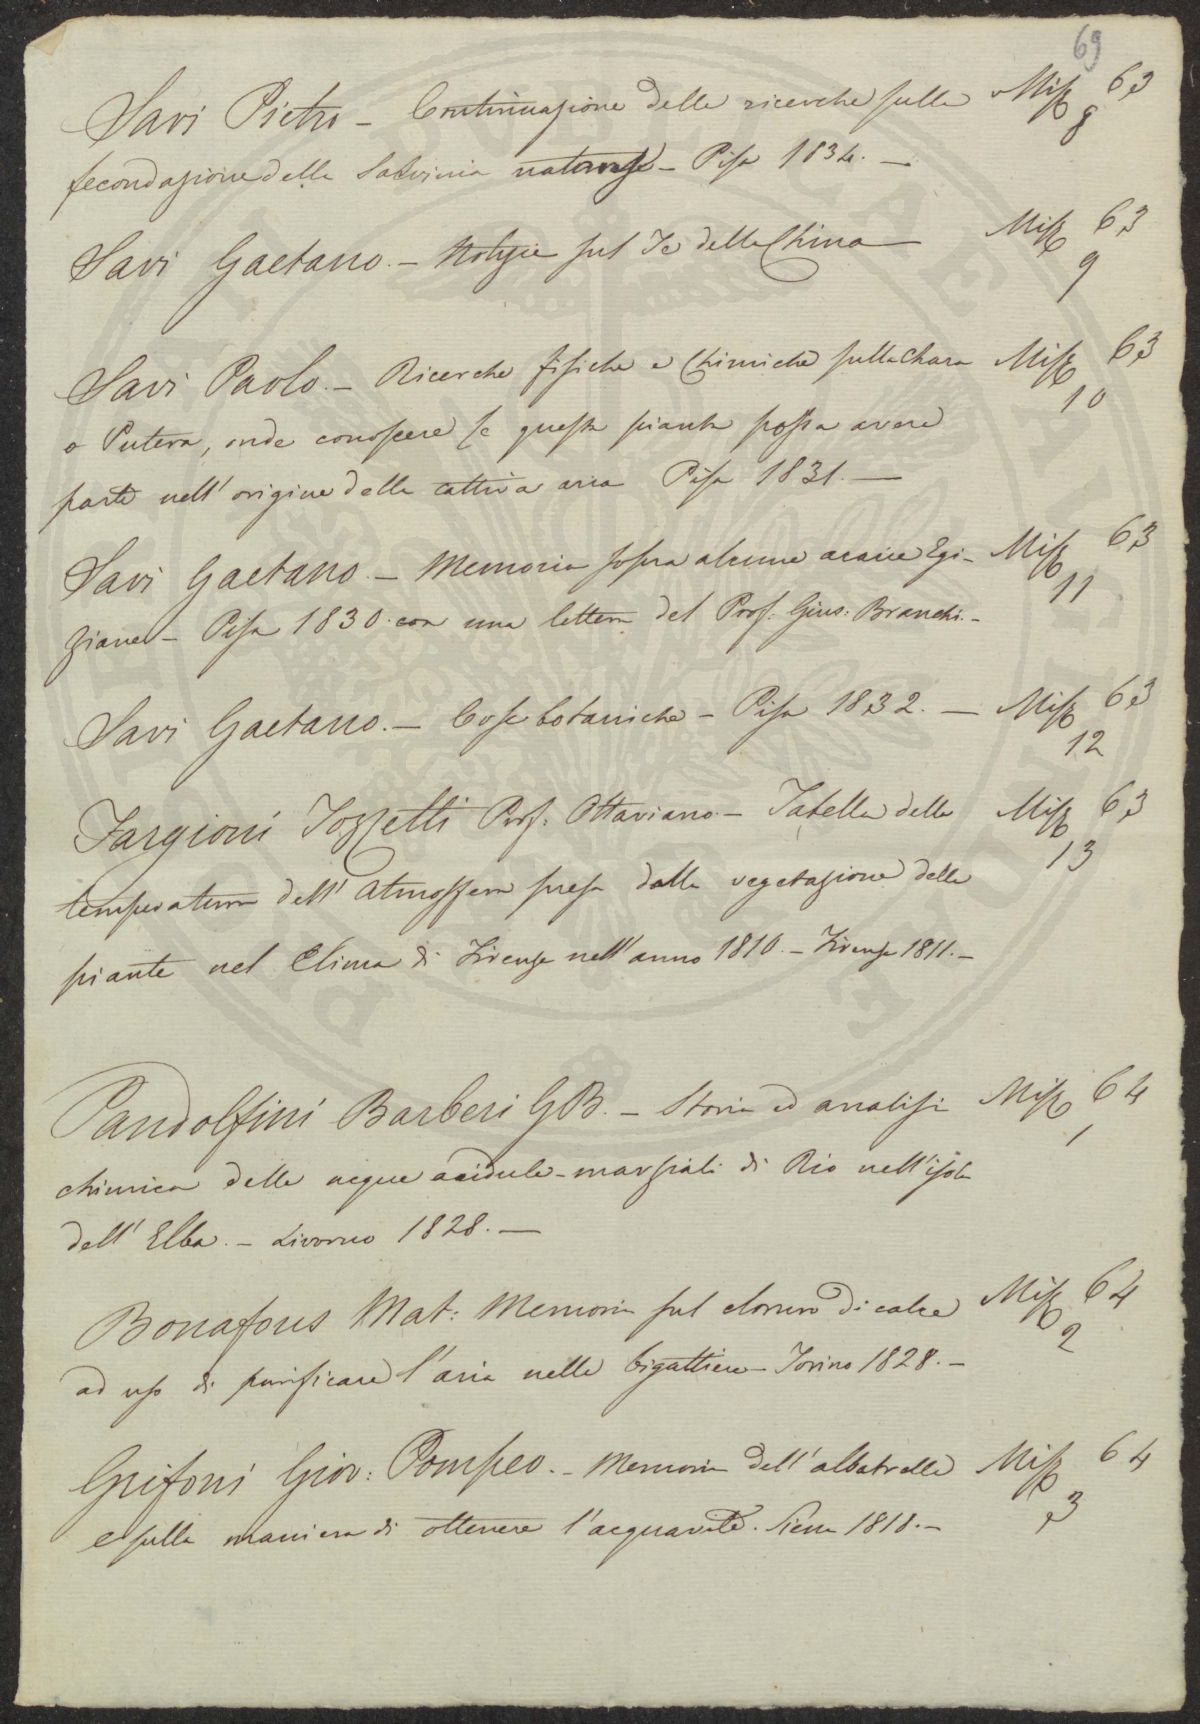 69
Savi Pietro – Continuazione delle ricerche sulla Miss 63
fecondazione della Salvinia natans – Pisa 1834. – 8
Savi Gaetano. – Notizie sul Te della China – Miss 63
9
Savi Paolo. – Ricerche fisiche e chimiche sulla Chara Miss 63
o Putera, onde conoscere se questa pianta possa avere 10
parte nell' origine della cattiva aria Pisa 1831. –
Savi Gaetano. – Memoria sopra alcune acacie Egi- Miss 63
ziane – Pisa 1830. con una lettera del Prof. Gius: Branchi. – 11
Savi Gaetano. – Cose botaniche – Pisa 1832. – Miss 63
12
Targioni Tozzetti Prof. Ottaviano – Tabella della Miss 63
temperatura dell' atmosfera presa dalla vegetazione delle 13
piante nel Clima di Firenze nell' anno 1810. – Firenze 1811. –
Pandolfini Barberi G B. – Storia ed analisi Miss 64
chimica delle acque acidule-marziali di Rio nell' isola 1
dell' Elba. – Livorno 1828. –
Bonafous Mat: Memoria sul cloruro di calce Miss 64
ad uso di purificare l' aria nelle bigattiere – Torino 1828. – 2
Grifoni Giov: Pompeo. – Memoria dell' albatrello Miss 64
e sulla maniera di ottenere l' acquavite. Siena 1818. – 3